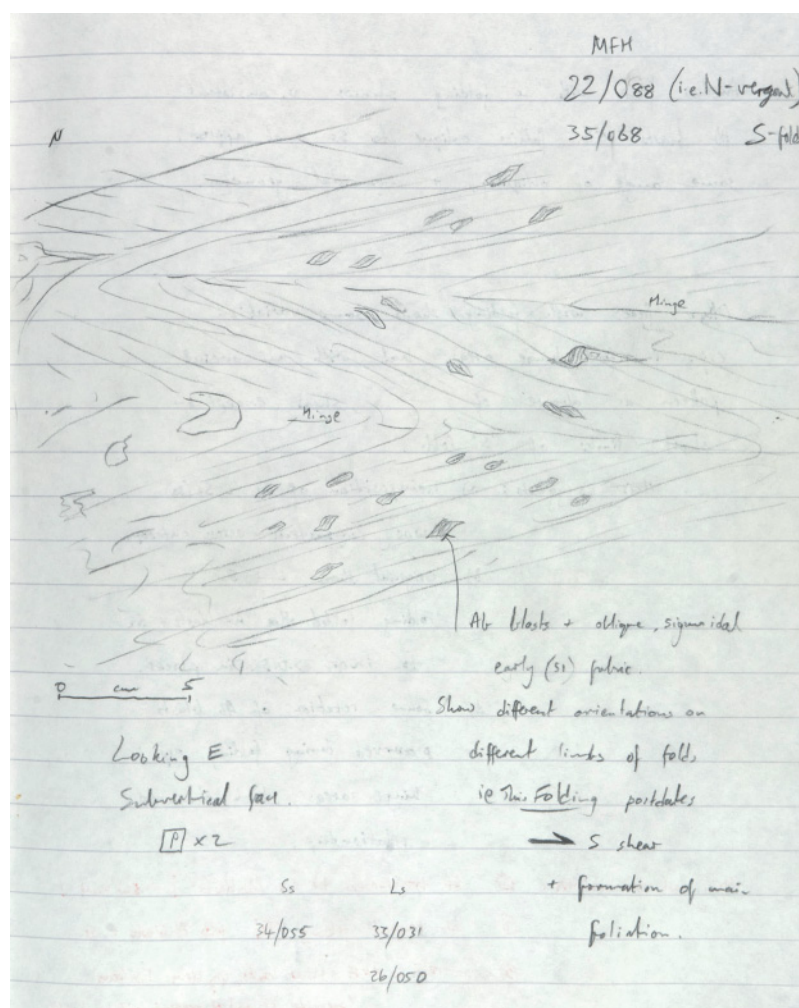 MFH
22/088 (i.e. N-vergent)
35/068 S-fold
N
Hinge
Hinge
Ab blasts + oblique, sigmoidal
early (S1) fabric.
Show different orientations on
different limbs of folds
ie This Folding postdates
→ S shear
+ formation of main
foliation.
0 cm 5
Looking E
Subvertical face.
P x 2
Ss Ls
34/055 33/031
26/050